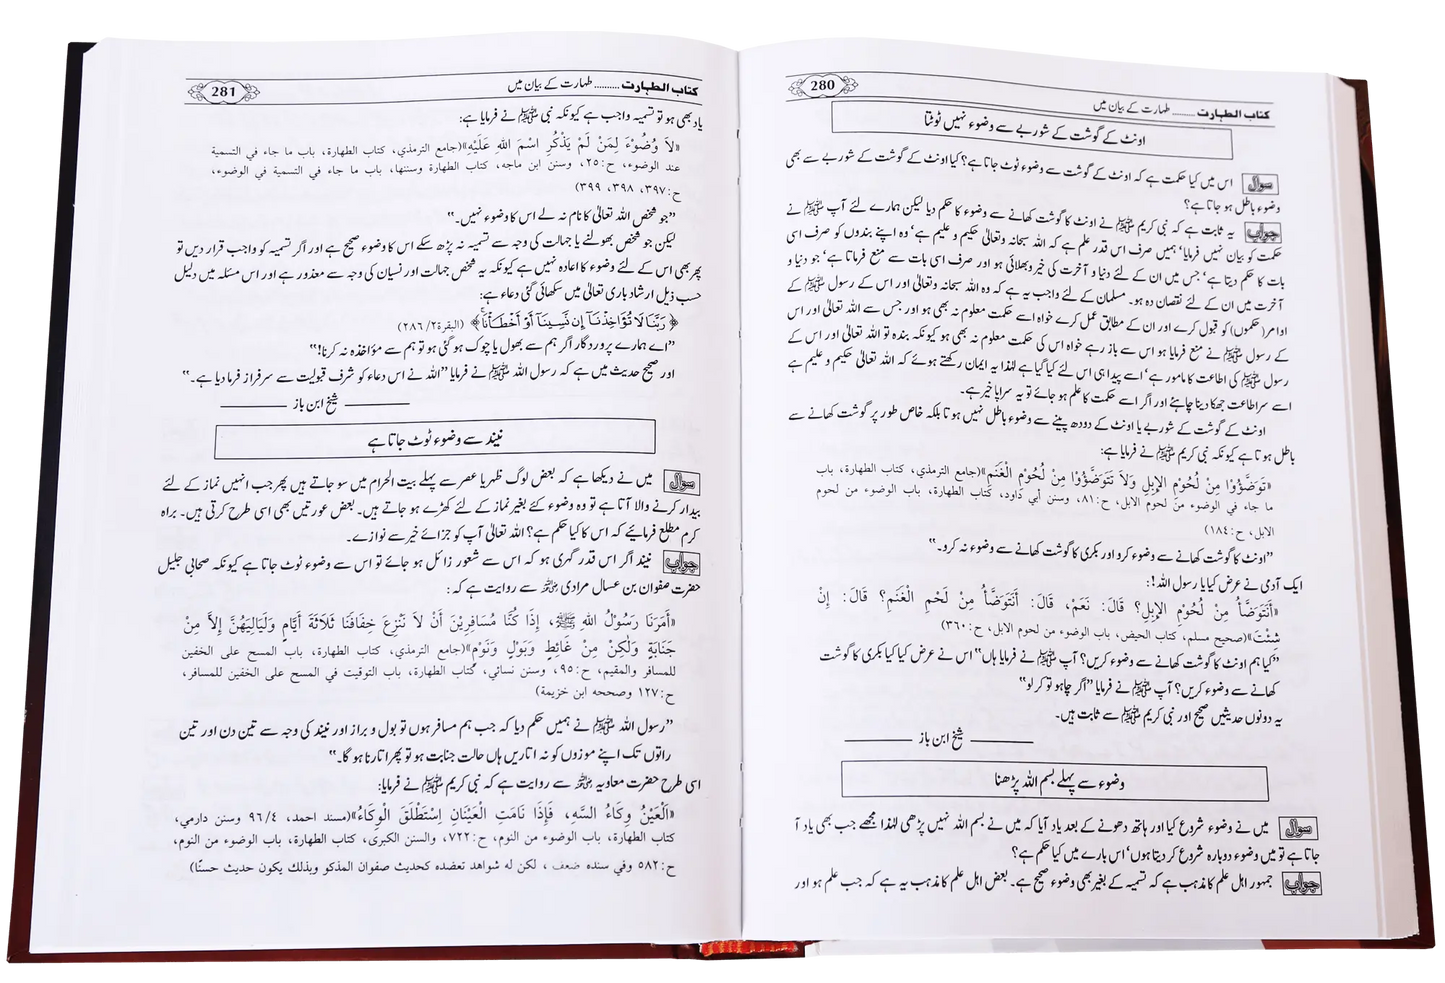 280
کتاب الطہارت ......... طہارت کے بیان میں
اونٹ کے گوشت کے شوربے سے وضوء نہیں ٹوٹتا
سوال اس میں کیا حکمت ہے کہ اونٹ کے گوشت سے وضوء ٹوٹ جاتا ہے؟ کیا اونٹ کے گوشت کے شوربے سے بھی
وضوء باطل ہو جاتا ہے؟
جواب یہ ثابت ہے کہ نبی کریم ﷺ نے اونٹ کا گوشت کھانے سے وضوء کا حکم دیا لیکن ہمارے لئے آپ ﷺ نے
حکمت کو بیان نہیں فرمایا‘ ہمیں صرف اس قدر علم ہے کہ اللہ سبحانہ وتعالیٰ حکیم و علیم ہے‘ وہ اپنے بندوں کو صرف اسی
بات کا حکم دیتا ہے‘ جس میں ان کے لئے دنیا و آخرت کی خیر وبھلائی ہو اور صرف اسی بات سے منع فرماتا ہے‘ جو دنیا و
آخرت میں ان کے لئے نقصان دہ ہو۔ مسلمان کے لئے واجب یہ ہے کہ وہ اللہ سبحانہ وتعالیٰ اور اس کے رسول ﷺ کے
اوامر (حکموں) کو قبول کرے اور ان کے مطابق عمل کرے خواہ اسے حکمت معلوم نہ بھی ہو اور جس سے اللہ تعالیٰ اور اس
کے رسول ﷺ نے منع فرمایا ہو اس سے باز رہے خواہ اس کی حکمت معلوم نہ بھی ہو کیونکہ بندہ تو اللہ تعالیٰ اور اس کے
رسول ﷺ کی اطاعت کا مامور ہے‘ اسے پیدا ہی اس لئے کیا گیا ہے لہٰذا یہ ایمان رکھتے ہوئے کہ اللہ تعالیٰ حکیم و علیم ہے
اسے سر اطاعت جھکا دینا چاہئے اور اگر اسے حکمت کا علم ہو جائے تو یہ سراپا خیر ہے۔
اونٹ کے گوشت کے شوربے یا اونٹ کے دودھ پینے سے وضوء باطل نہیں ہوتا بلکہ خاص طور پر گوشت کھانے سے
باطل ہوتا ہے کیونکہ نبی کریم ﷺ نے فرمایا ہے:
«تَوَضَّؤُوْا مِنْ لُحُوْمِ الإِبِلِ وَلاَ تَتَوَضَّؤُوْا مِنْ لُحُوْمِ الْغَنَمِ»(جامع الترمذي، كتاب الطهارة، باب
ما جاء في الوضوء من لحوم الابل، ح:٨١، وسنن أبي داود، كتاب الطهارة، باب الوضوء من لحوم
الابل، ح:١٨٤)
”اونٹ کا گوشت کھانے سے وضوء کرو اور بکری کا گوشت کھانے سے وضوء نہ کرو۔“
ایک آدمی نے عرض کیا یا رسول اللہ!:
«أَنَتَوَضَّأُ مِنْ لُحُوْمِ الإِبِلِ؟ قَالَ: نَعَمْ، قَالَ: أَنَتَوَضَّأُ مِنْ لَحْمِ الْغَنَمِ؟ قَالَ: إِنْ
شِئْتَ»(صحيح مسلم، كتاب الحيض، باب الوضوء من لحوم الابل، ح:٣٦٠)
”کیا ہم اونٹ کا گوشت کھانے سے وضوء کریں؟ آپ ﷺ نے فرمایا ہاں“ اس نے عرض کیا کیا بکری کا گوشت
کھانے سے وضوء کریں؟ آپ ﷺ نے فرمایا ”اگر چاہو تو کر لو“
یہ دونوں حدیثیں صحیح اور نبی کریم ﷺ سے ثابت ہیں۔
شیخ ابن باز
وضوء سے پہلے بسم اللہ پڑھنا
سوال میں نے وضوء شروع کیا اور ہاتھ دھونے کے بعد یاد آیا کہ میں نے بسم اللہ نہیں پڑھی لہٰذا مجھے جب بھی یاد آ
جاتا ہے تو میں وضوء دوبارہ شروع کر دیتا ہوں‘ اس بارے میں کیا حکم ہے؟
جواب جمہور اہل علم کا مذہب ہے کہ تسمیہ کے بغیر بھی وضوء صحیح ہے۔ بعض اہل علم کا مذہب یہ ہے کہ جب علم ہو اور
281
کتاب الطہارت ......... طہارت کے بیان میں
یاد بھی ہو تو تسمیہ واجب ہے کیونکہ نبی ﷺ نے فرمایا ہے:
«لاَ وُضُوْءَ لِمَنْ لَمْ يَذْكُرِ اسْمَ اللهِ عَلَيْهِ»(جامع الترمذي، كتاب الطهارة، باب ما جاء في التسمية
عند الوضوء، ح:٢٥، وسنن ابن ماجه، كتاب الطهارة وسننها، باب ما جاء في التسمية في الوضوء،
ح:٣٩٧، ٣٩٨، ٣٩٩)
”جو شخص اللہ تعالیٰ کا نام نہ لے اس کا وضوء نہیں۔“
لیکن جو شخص بھولنے یا جہالت کی وجہ سے تسمیہ نہ پڑھ سکے اس کا وضوء صحیح ہے اور اگر تسمیہ کو واجب قرار دیں تو
پھر بھی اس کے لئے وضوء کا اعادہ نہیں ہے کیونکہ یہ شخص جہالت اور نسیان کی وجہ سے معذور ہے اور اس مسئلہ میں دلیل
حسب ذیل ارشاد باری تعالیٰ میں سکھائی گئی دعاء ہے:
﴿رَبَّنَا لَا تُؤَاخِذْنَا إِن نَّسِينَا أَوْ أَخْطَأْنَا﴾ (البقرة٢/٢٨٦)
”اے ہمارے پروردگار اگر ہم سے بھول یا چوک ہو گئی ہو تو ہم سے مؤاخذہ نہ کرنا!“
اور صحیح حدیث میں ہے کہ رسول اللہ ﷺ نے فرمایا ”اللہ نے اس دعاء کو شرف قبولیت سے سرفراز فرما دیا ہے۔“
شیخ ابن باز
نیند سے وضوء ٹوٹ جاتا ہے
سوال میں نے دیکھا ہے کہ بعض لوگ ظہر یا عصر سے پہلے بیت الحرام میں سو جاتے ہیں پھر جب انہیں نماز کے لئے
بیدار کرنے والا آتا ہے تو وہ وضوء کئے بغیر نماز کے لئے کھڑے ہو جاتے ہیں۔ بعض عورتیں بھی اسی طرح کرتی ہیں۔ براہ
کرم مطلع فرمائیے کہ اس کا کیا حکم ہے؟ اللہ تعالیٰ آپ کو جزائے خیر سے نوازے۔
جواب نیند اگر اس قدر گہری ہو کہ اس سے شعور زائل ہو جائے تو اس سے وضوء ٹوٹ جاتا ہے کیونکہ صحابی جلیل
حضرت صفوان بن عسال مرادی رضی اللہ عنہ سے روایت ہے کہ:
«أَمَرَنَا رَسُوْلُ اللهِ ﷺ، إِذَا كُنَّا مُسَافِرِيْنَ أَنْ لاَ نَنْزِعَ خِفَافَنَا ثَلاَثَةَ أَيَّامٍ وَلَيَالِيَهُنَّ إِلاَّ مِنْ
جَنَابَةٍ وَلٰكِنْ مِنْ غَائِطٍ وَبَوْلٍ وَنَوْمٍ»(جامع الترمذي، كتاب الطهارة، باب المسح على الخفين
للمسافر والمقيم، ح:٩٥، وسنن نسائي، كتاب الطهارة، باب التوقيت في المسح على الخفين للمسافر،
ح:١٢٧ وصححه ابن خزيمة)
”رسول اللہ ﷺ نے ہمیں حکم دیا کہ جب ہم مسافر ہوں تو بول و براز اور نیند کی وجہ سے تین دن اور تین
راتوں تک اپنے موزوں کو نہ اتاریں ہاں حالت جنابت ہو تو پھر اتارنا ہو گا۔“
اسی طرح حضرت معاویہ رضی اللہ عنہ سے روایت ہے کہ نبی کریم ﷺ نے فرمایا:
«اَلْعَيْنُ وِكَاءُ السَّهِ، فَإِذَا نَامَتِ الْعَيْنَانِ اِسْتَطْلَقَ الْوِكَاءُ»(مسند احمد، ٤/٩٦ وسنن دارمي،
كتاب الطهارة، باب الوضوء من النوم، ح:٧٢٢، والسنن الكبرى، كتاب الطهارة، باب الوضوء من النوم،
ح:٥٨٢ وفي سنده ضعف، لكن له شواهد تعضده كحديث صفوان المذكو وبذلك يكون حديث حسنًا)